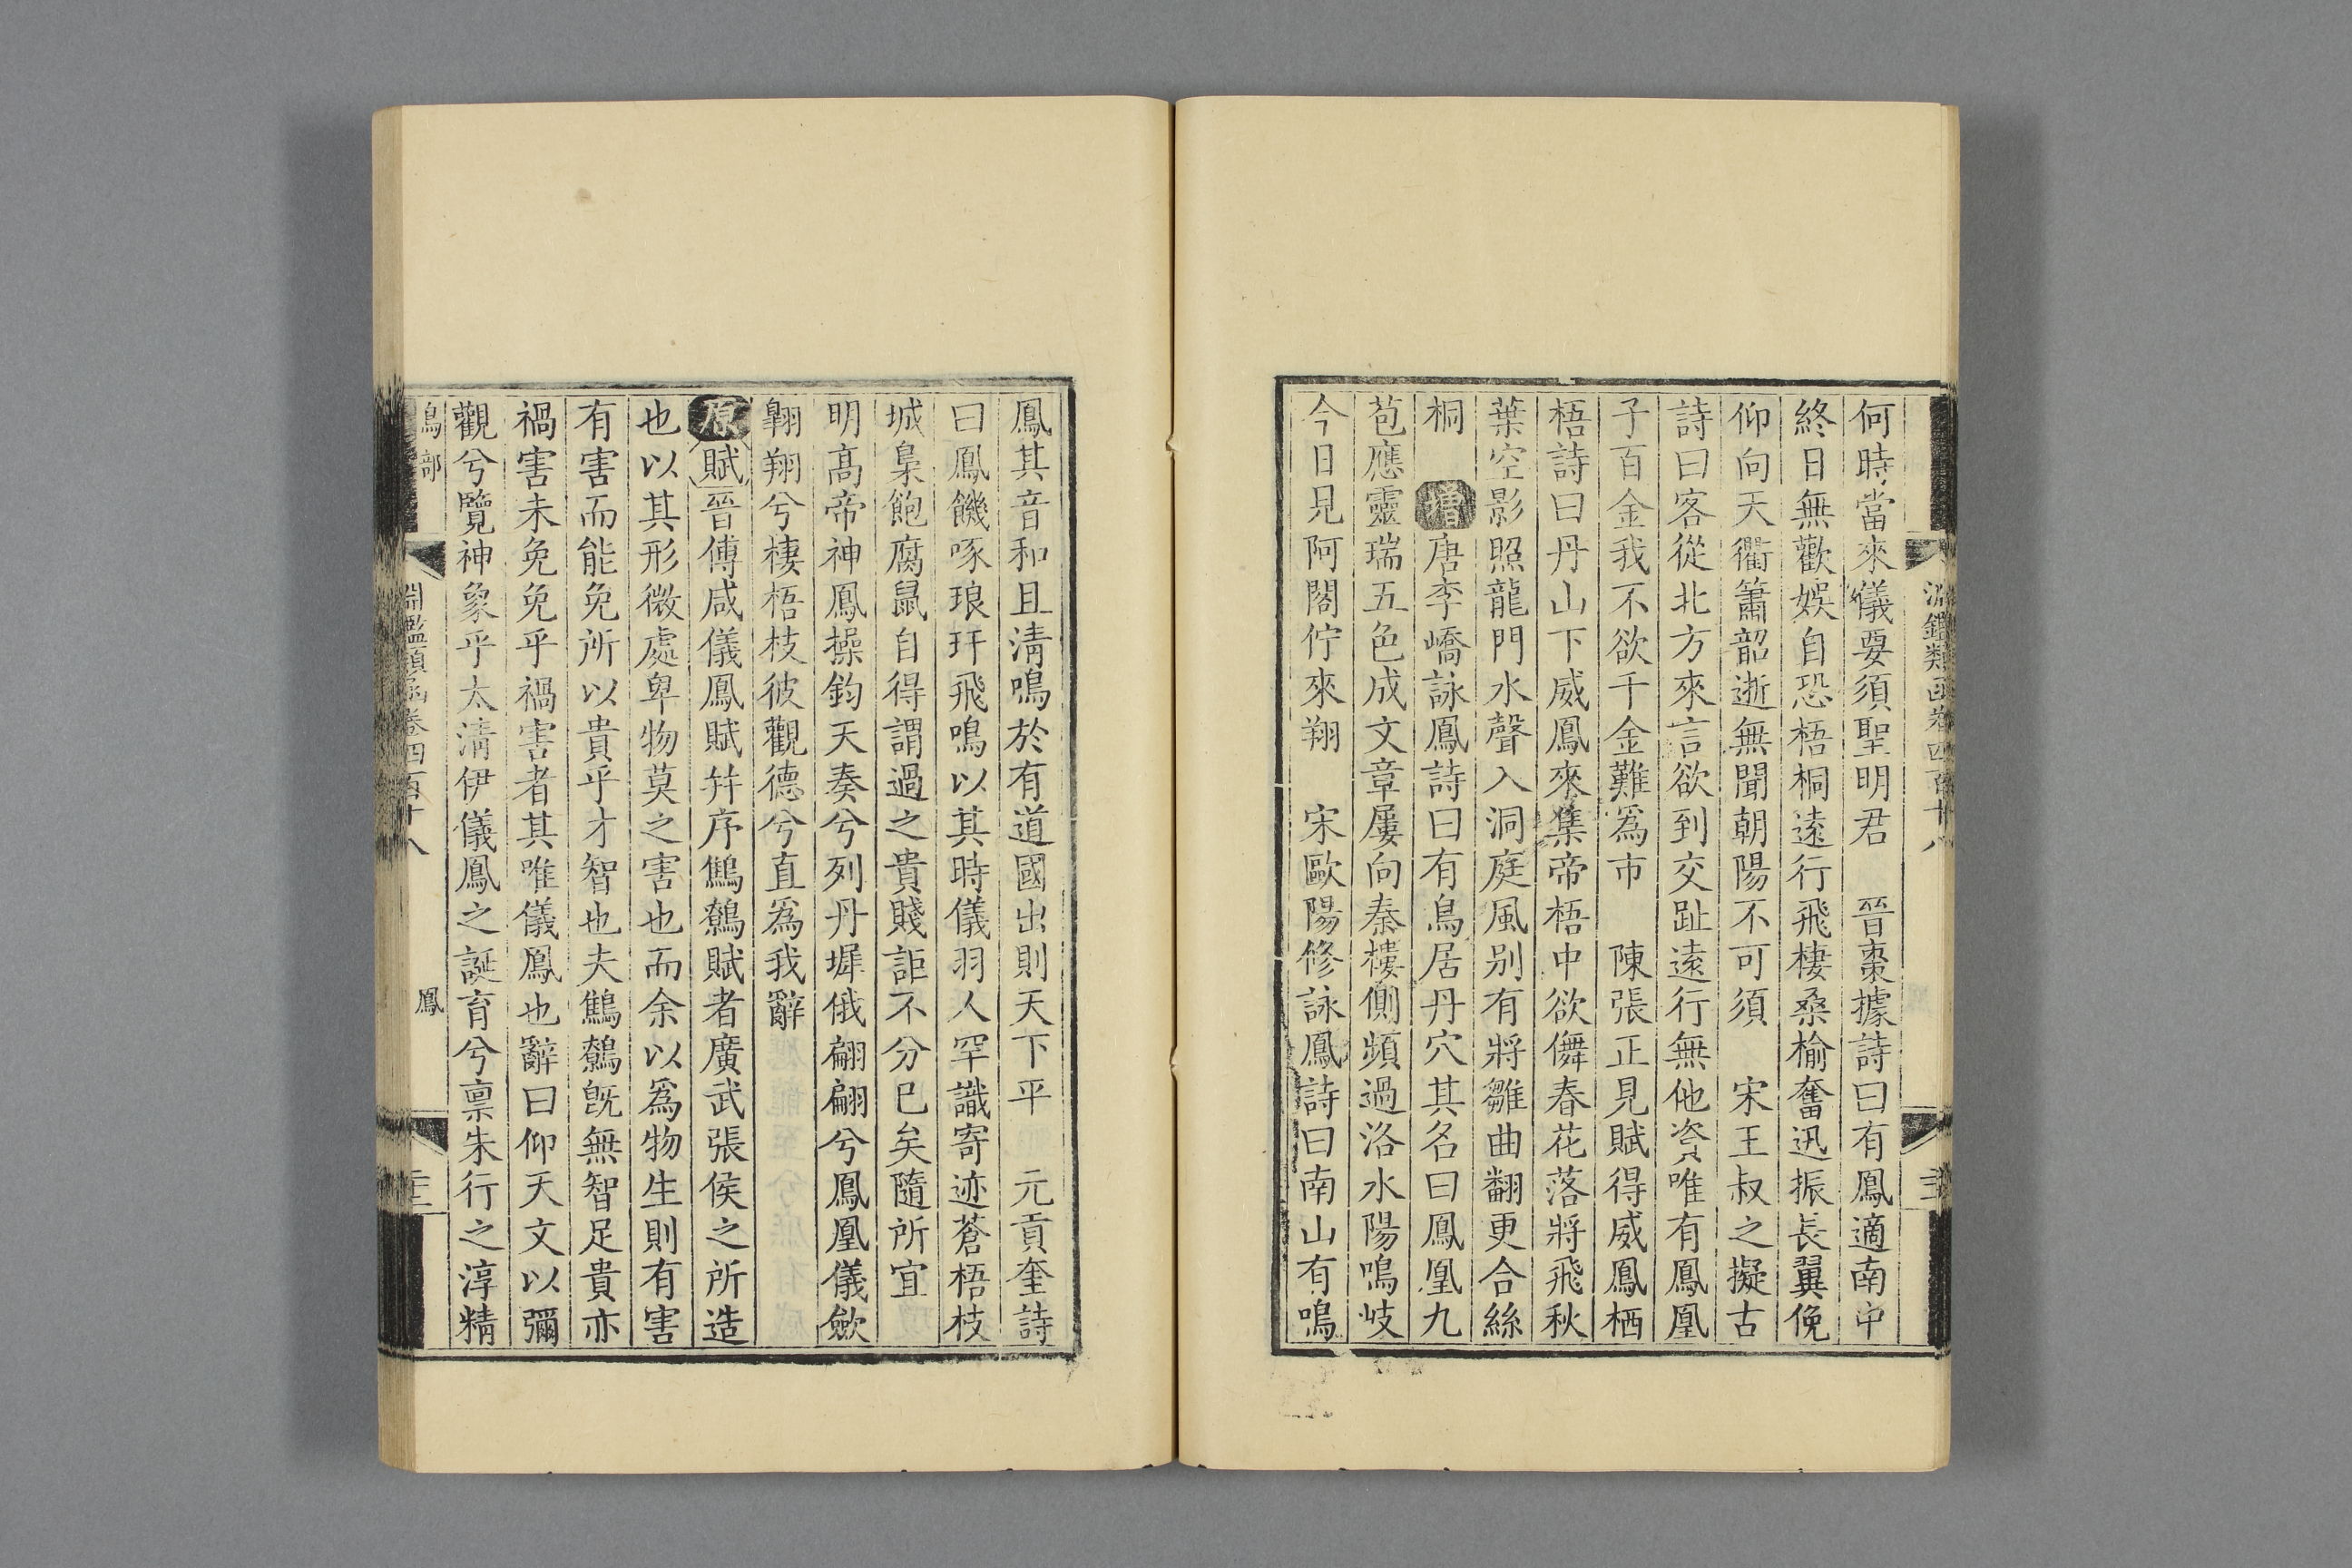 何時當來儀要須聖明君　晉棗據詩曰有鳳適南中
終日無歡娛自恐梧桐遠行飛棲桑榆奮迅振長翼俛
仰向天衢簫韶逝無聞朝陽不可須　宋王叔之擬古
詩曰客從北方來言欲到交趾遠行無他資唯有鳳凰
子百金我不欲千金難爲市　陳張正見賦得威鳳栖
梧詩曰丹山下威鳳來集帝梧中欲儛春花落將飛秋
葉空影照龍門水聲入洞庭風别有將雛曲翻更合絲
桐　增唐李嶠詠鳳詩曰有鳥居丹穴其名曰鳳凰九
苞應靈瑞五色成文章屢向秦樓側頻過洛水陽鳴岐
今日見阿閣佇來翔　宋歐陽修詠鳳詩曰南山有鳴
鳳其音和且清鳴於有道國出則天下平　元貢奎詩
曰鳳饑啄琅玕飛鳴以其時儀羽人罕識寄迹蒼梧枝
城梟飽腐鼠自得謂過之貴賤詎不分已矣隨所宜
明高帝神鳳操鈞天奏兮列丹墀俄翩翩兮鳳凰儀歛
翱翔兮棲梧枝彼觀德兮直爲我辭
原賦晉傅咸儀鳳賦幷序鷦鷯賦者廣武張侯之所造
也以其形微處卑物莫之害也而余以爲物生則有害
有害而能免所以貴乎才智也夫鷦鷯旣無智足貴亦
禍害未免免乎禍害者其唯儀鳳也辭曰仰天文以彌
觀兮覽神象乎太清伊儀鳳之誕育兮禀朱行之淳精
鳥部
淵鑑類函卷四百十八
鳳